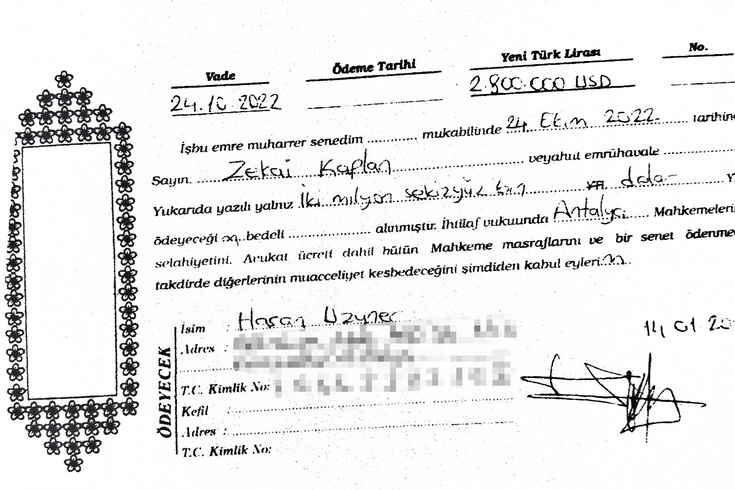 Vade Ödeme Tarihi Yeni Türk Lirası No.
24.10.2022 2.800.000 USD
İşbu emre muharrer senedim ............ mukabilinde 24 Ekim 2022 tarihin
Sayın. Zekai Kaplan veyahut emrühavale
Yukarıda yazılı yalnız İki milyon sekizyüz bin dolar
ödeyeceği bedeli ............ alınmıştır. İhtilaf vukuunda Antalya Mahkemeleri
selahiyetini. Avukat ücreti dahil bütün Mahkeme masraflarını ve bir senet ödenme
takdirde diğerlerinin muacceliyet kesbedeceğini şimdiden kabul eylerim.
ÖDEYECEK
İsim : Hasan Uzuner
14 01 20
Adres :
T.C. Kimlik No:
Kefil :
Adres :
T.C. Kimlik No: